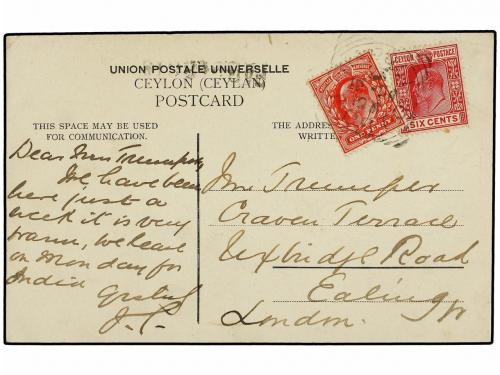 UNION POSTALE UNIVERSELLE
CEYLON (CEYLAN)
POSTCARD
THIS SPACE MAY BE USED
FOR COMMUNICATION.
THE ADDRESS
WRITTEN
ONE PENNY
CEYLON POSTAGE
SIX CENTS
Dear Mrs Trumper,
We have been
here just a
week it is very
warm, we leave
on Monday for
India
J.P.
Mrs Trumper
Craven Terrace
Uxbridge Road
Ealing W
London.